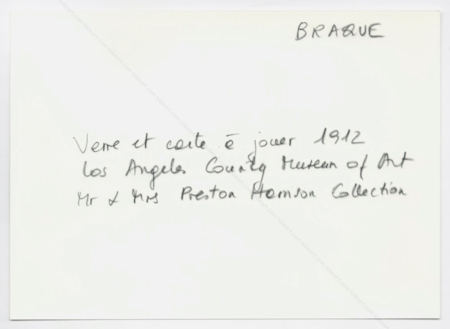 BRAQUE
Verre et carte à jouer 1912
Los Angeles County Museum of Art
Mr & Mrs Preston Harrison Collection